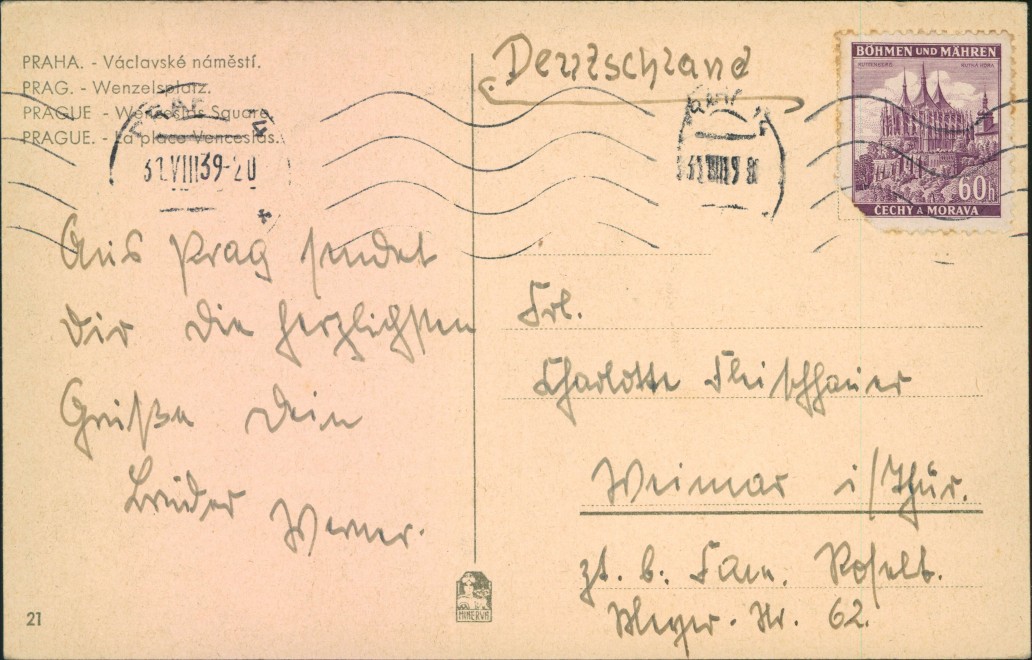 PRAHA. - Václavské náměstí.
PRAG. - Wenzelsplatz.
PRAGUE - Wenceslas Square.
PRAGUE. - La place Venceslas.
31.VIII39-20
Deutschland
BÖHMEN UND MÄHREN
KUTTENBERG KUTNÁ HORA
60h
ČECHY A MORAVA
Aus Prag sendet
Dir die herzlichsten
Grüße Dein
Bruder Werner.
Frl.
Charlotte Fleischhauer
Weimar i/Thür.
zt. b. Fam.
Meyer-Str. 62.
21
MINERVA